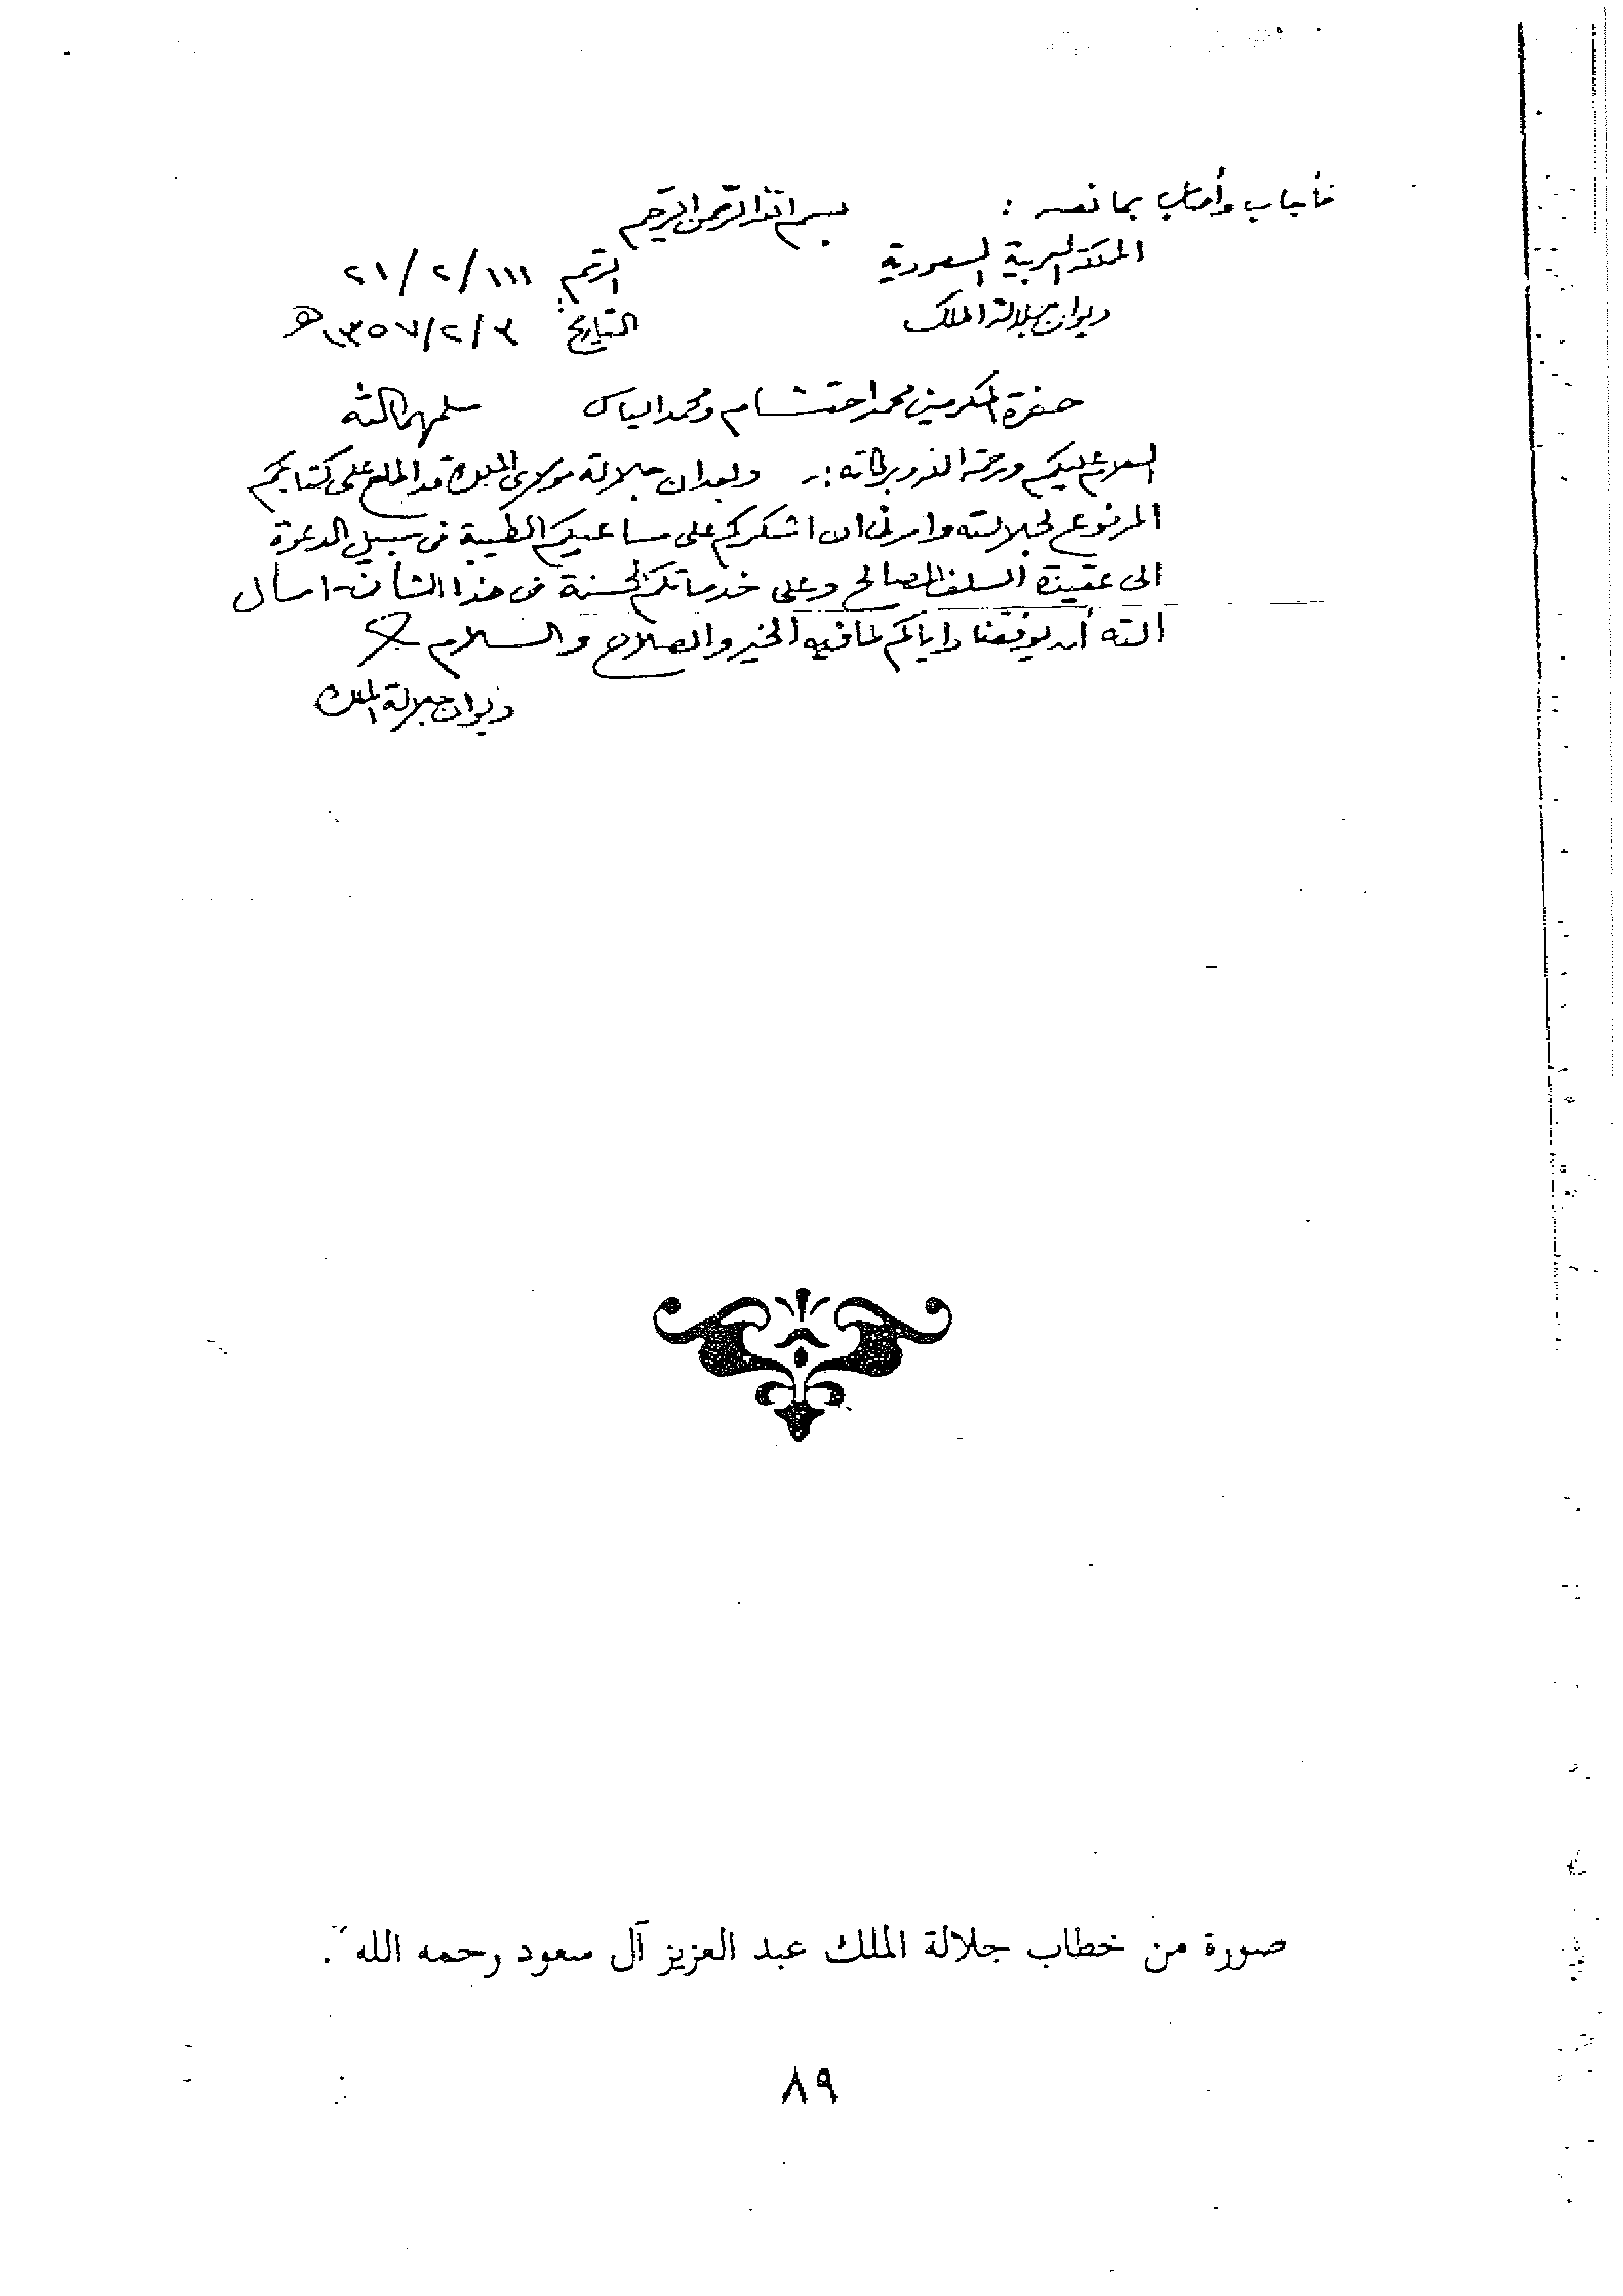 فأجاب وأصاب بما نصه :
بسم الله الرحمن الرحيم
المملكة العربية السعودية
الرقم ٢١/٢/١١١
ديوان جلالة الملك
التاريخ: ١٣٥٧/٢/٣هـ
حضرة المكرمين محمد احتشام ومحمد الياس سلمهما الله
السلام عليكم ورحمة الله وبركاته :ـ وبعد ان جلالة مولاى الملك قد اطلع على كتابكم
المرفوع لجلالته وامرنى ان اشكركم على مساعيكم الطيبة فى سبيل الدعوة
الى عقيدة السلف الصالح وعلى خدماتكم الحسنة فى هذا الشأن - اسأل
الله أن يوفقنا واياكم لما فيه الخير والصلاح والسلام
ديوان جلالة الملك
صورة من خطاب جلالة الملك عبد العزيز آل سعود رحمه الله .
٨٩